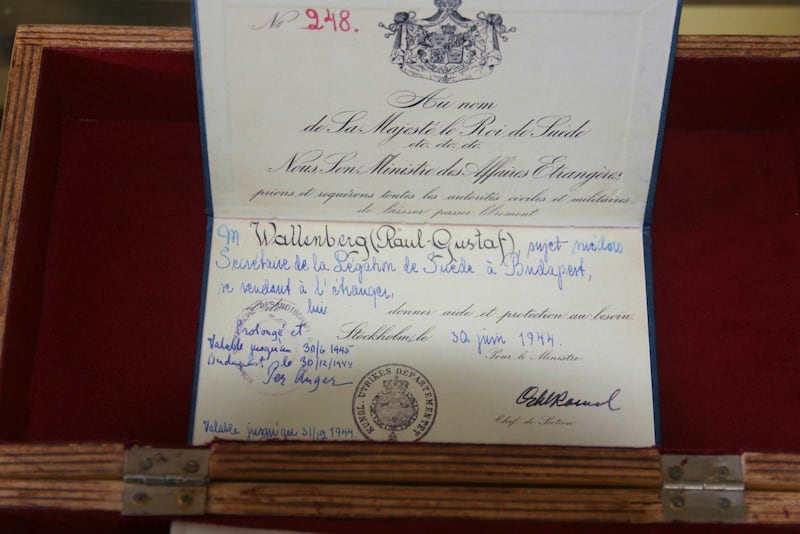 No 248.
Au nom
de Sa Majesté le Roi de Suède
etc. etc. etc.
Nous Son Ministre des Affaires Etrangères
prions et requérons toutes les autorités civiles et militaires
de laisser passer librement
M. Wallenberg (Raoul-Gustaf), sujet suédois
Secrétaire de la Légation de Suède à Budapest,
se rendant à l'étranger,
lui donner aide et protection au besoin.
Stockholm, le 30 juin 1944.
Pour le Ministre
Prolongé et
Valable jusqu'au 30/6 1945
Budapest le 30/12/1944
Per Anger
KUNGL. UTRIKES DEPARTEMENTET
Chef de Section
Valable jusqu'au 31/12 1944